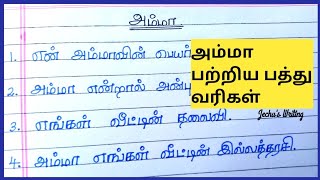 அம்மா
1. என் அம்மாவின் பெயர்
2. அம்மா என்றால் அன்பு
3. எங்கள் வீட்டின் தலைவி.
4. அம்மா எங்கள் வீட்டின் இல்லத்தரசி.
அம்மா
பற்றிய பத்து
வரிகள்
Jechu's Writing